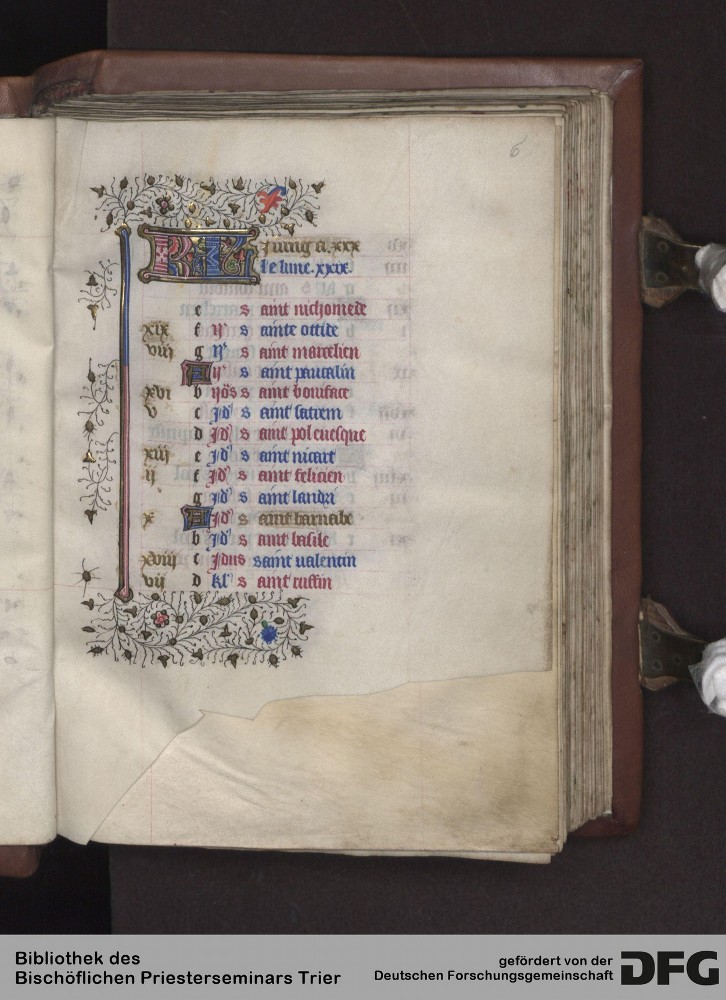 6
KL Juing a .xxx
le lune .xxix.
e s aint nichomede
xix f iiij s ainte ottide
viii g iij s aint marcelien
A ij s aint pancalin
xvi b nos s aint boniface
v c id s aint
d id s aint pol euesque
xiij e id s aint
ij f id s aint felicien
g id s aint landri
x A id s aint barnabe
h id s aint basile
xviii c idus saint ualentin
vij d kl s aint ruffin
Bibliothek des
Bischöflichen Priesterseminars Trier
gefördert von der
Deutschen Forschungsgemeinschaft
DFG